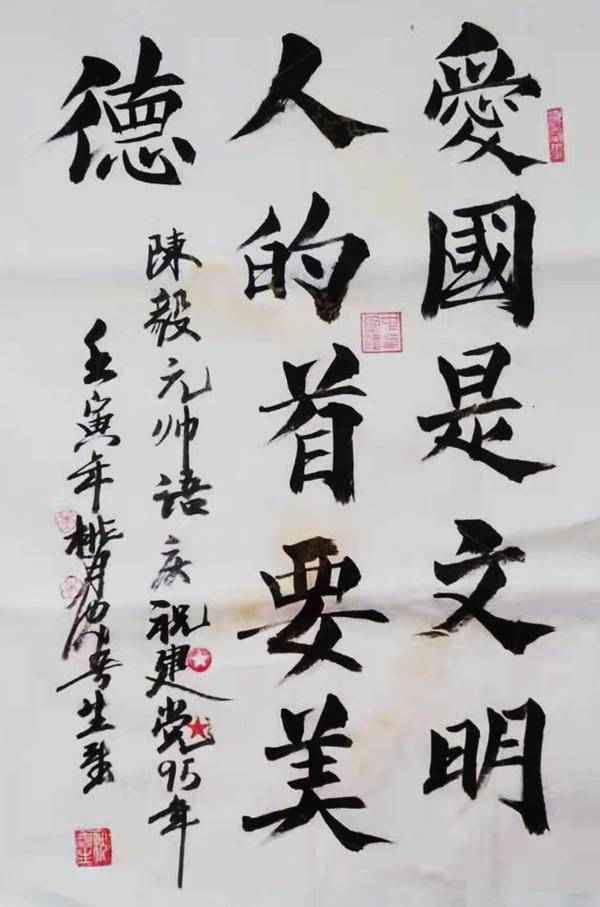 愛國是文明
人的首要美
德
陳毅元帅語庆祝建党95年
壬寅年桃月